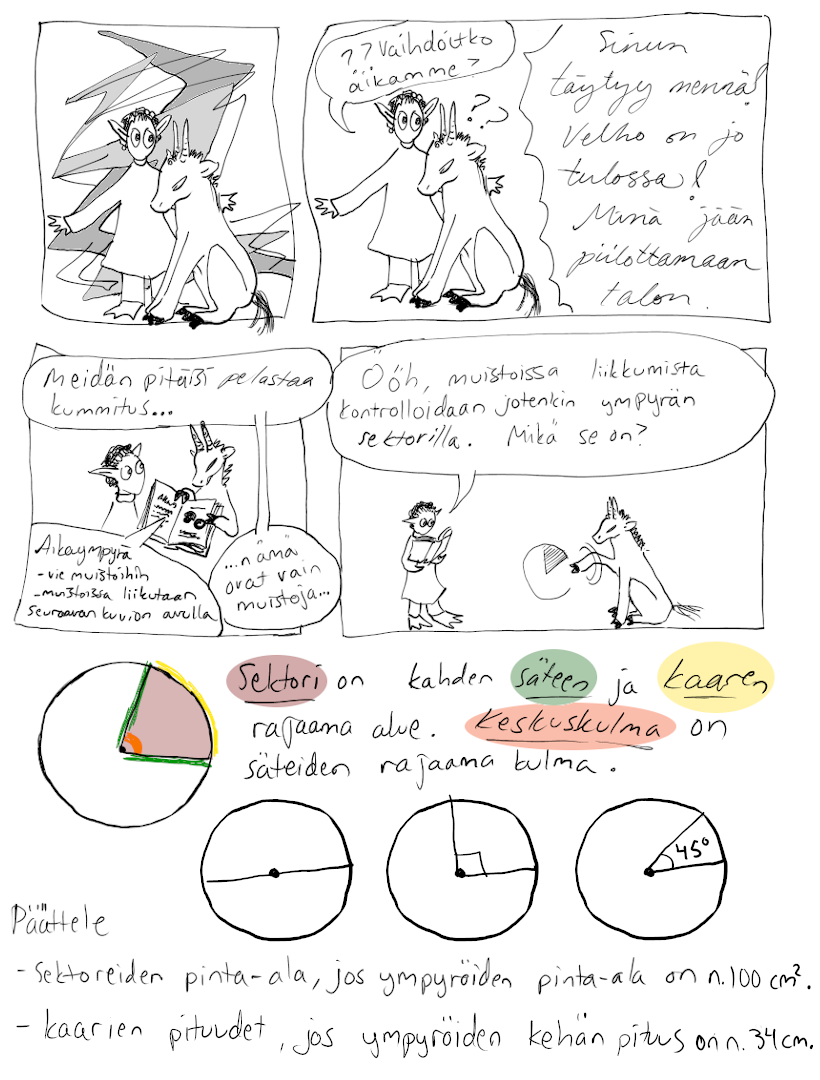 ?? Vaihdoitko
äikamme?
??
Sinun
täytyy mennä!
Velho on jo
tulossa!
Minä jään
piilottamaan
talon.
Meidän pitäisi pelastaa
kummitus...
Aikaympyrä
- vie muistoihin
- muistoissa liikutaan
seuraavan kuvion avulla
...nämä
ovat vain
muistoja...
Ööh, muistoissa liikkumista
kontrolloidaan jotenkin ympyrän
sektorilla. Mikä se on?
Sektori on kahden säteen ja kaaren
rajaama alue. Keskuskulma on
säteiden rajaama kulma.
45°
Päättele
- Sektoreiden pinta-ala, jos ympyröiden pinta-ala on n.100 cm².
- kaarien pituudet, jos ympyröiden kehän pituus on n.34cm.